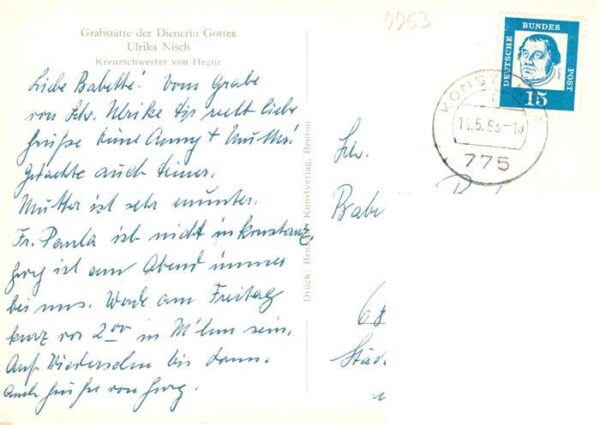 Grabstätte der Dienerin Gottes
Ulrika Nisch
Kreuzschwester von Hegne
Liebe Babette! Vom Grabe
von Schw. Ulrike Dir recht liebe
Grüsse Deine Anny + Mutter
Gedachte auch Deiner.
Mutter ist sehr munter.
Fr. Paula ist nicht in Konstanz,
Georg ist am Abend immer
bei uns. Werde am Freitag
kurz vor 2.00 in M'hm sein.
Auf Wiedersehn bis dann.
Auch Grüße von Georg.
Druck, Beuroner Kunstverlag, Beuron
7753
DEUTSCHE BUNDES POST
15
14.5.63-18
775
Schw.
Babe
68
Städ